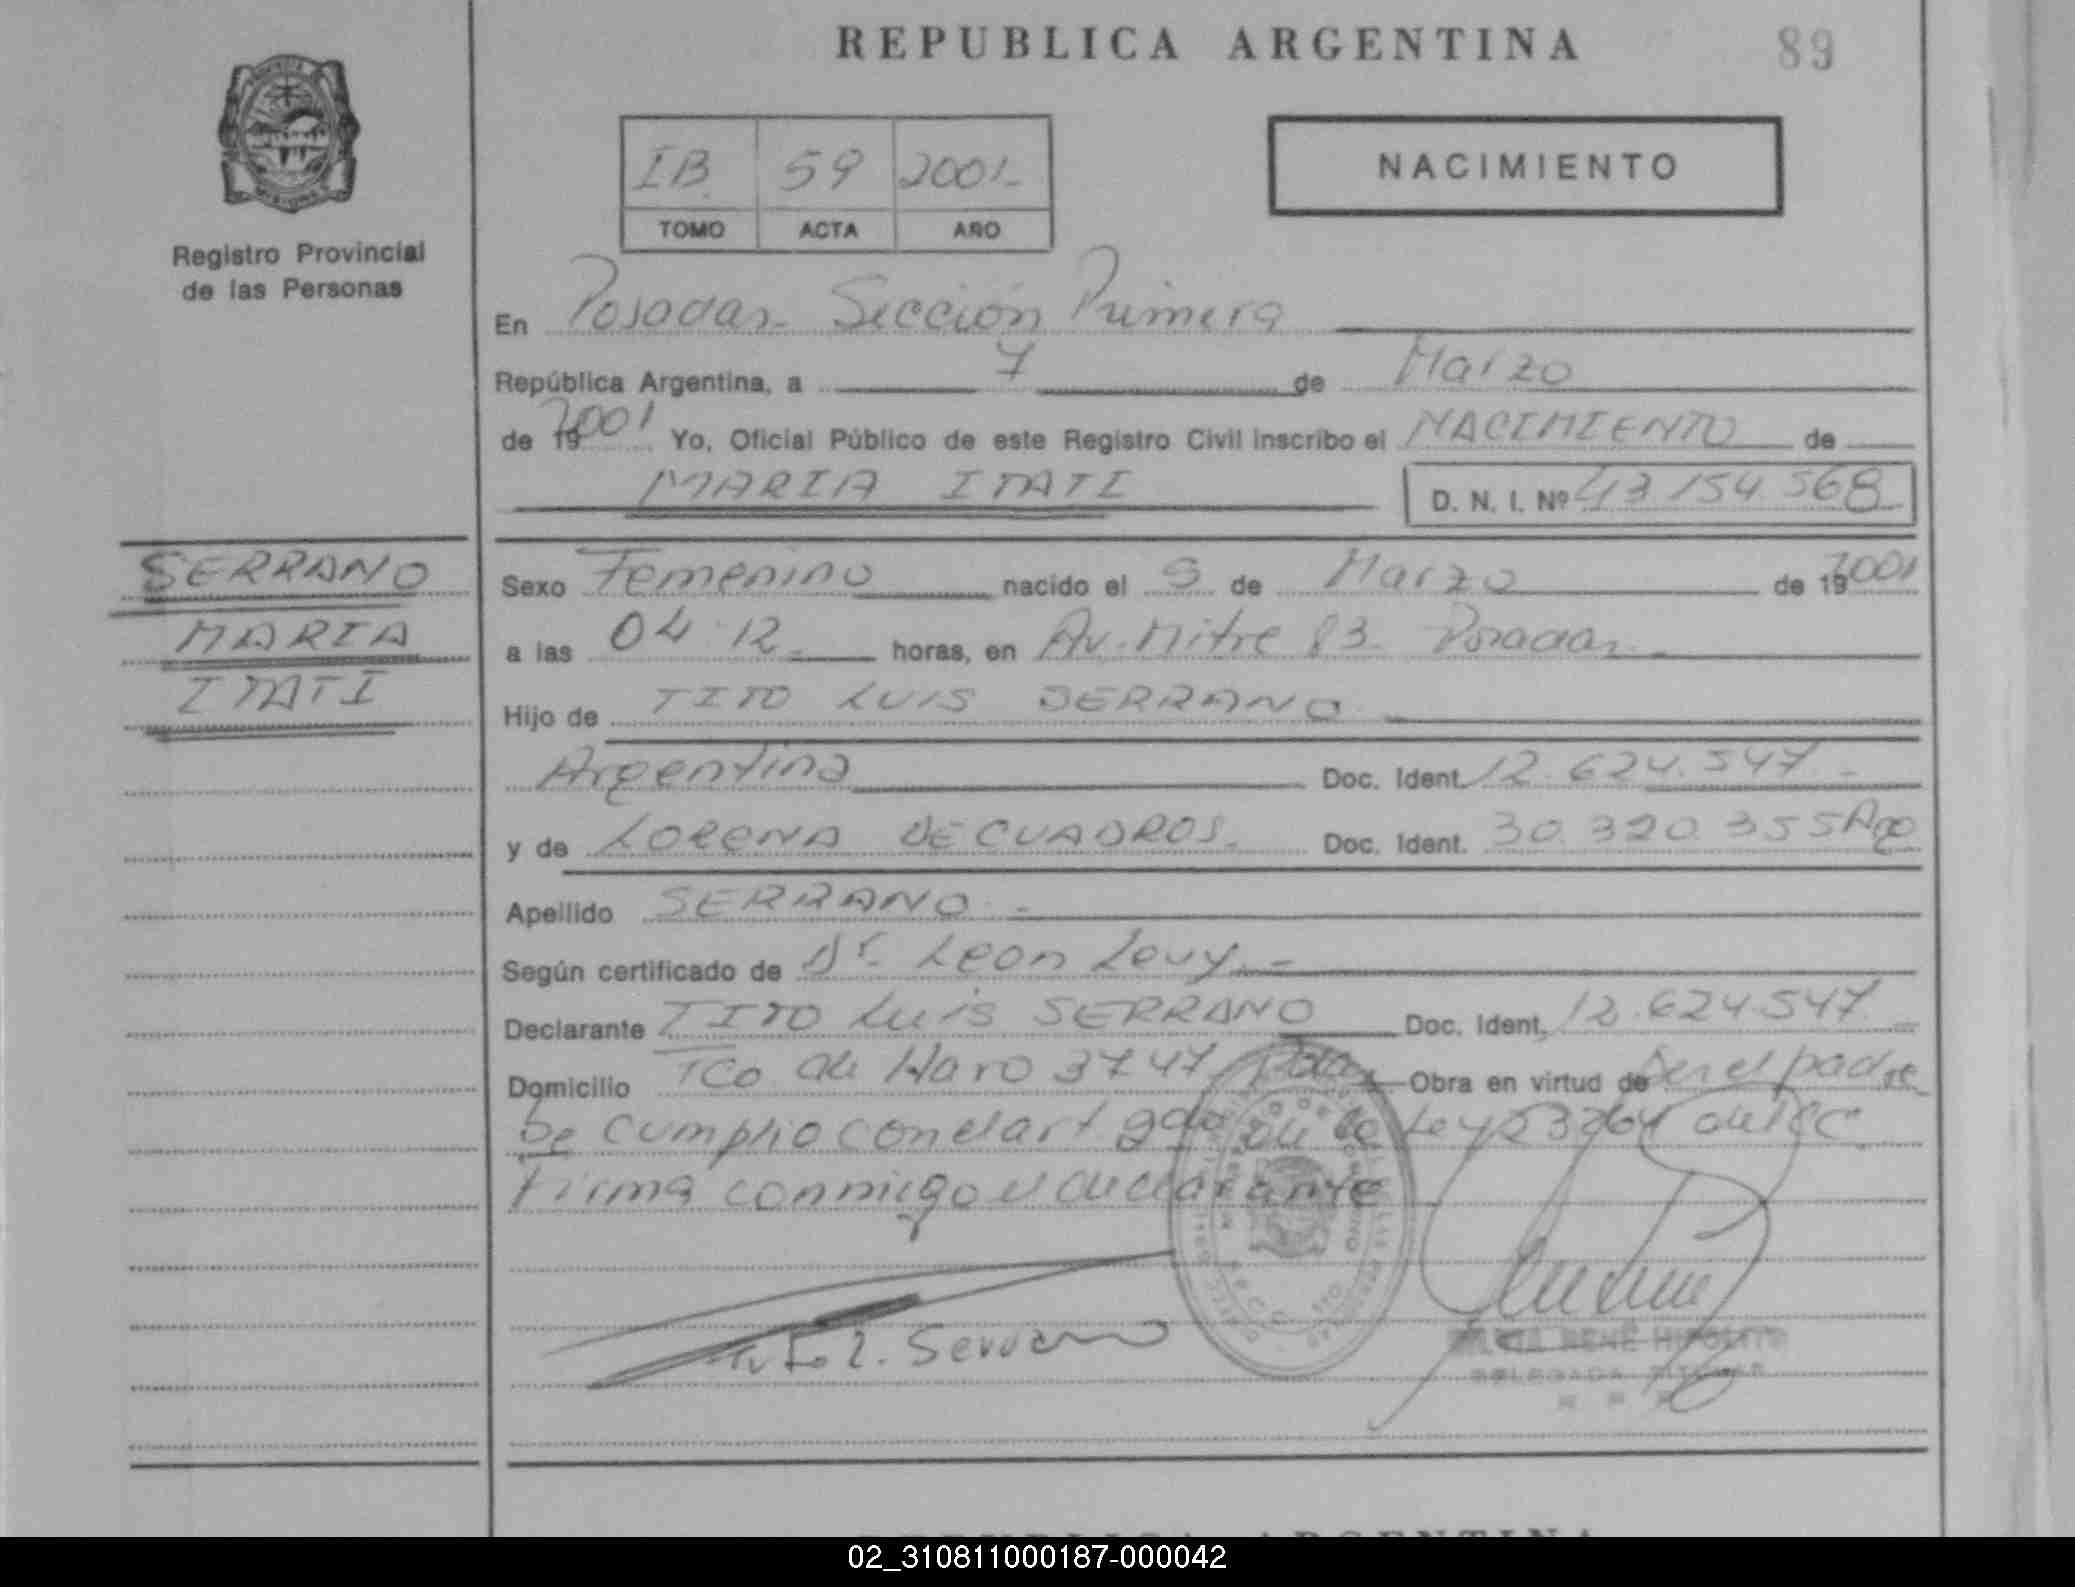 REPUBLICA ARGENTINA
89
IB 59 2001-
TOMO ACTA AÑO
NACIMIENTO
Registro Provincial
de las Personas
En Posadas- Sección Primera
República Argentina, a 7 de Marzo
de 19 2001 Yo, Oficial Público de este Registro Civil inscribo el NACIMIENTO de
MARIA ITATI D. N. I. Nº 43.154.568
SERRANO
MARIA
ITATI
Sexo Femenino nacido el de Marzo de 19 2001
a las 04.12- horas, en Av. Mitre 83- Posadas-
Hijo de TITO LUIS SERRANO
Argentina Doc. Ident. 12.624.547.-
y de LORENA DE CUADROS. Doc. Ident. 30.320.355 Arg
Apellido SERRANO.-
Según certificado de Dr. Leon Levy.-
Declarante TITO LUIS SERRANO Doc. Ident. 12.624.547
Domicilio Tco. de Haro 3747 Pdas Obra en virtud de Ser el padre
Se cumplio con el art 2do de la Ley 23264 del CC.
Firma conmigo el declarante
Tito L. Serrano
RENÉ HIPOLITO
DELEGADA TITULAR
REPUBLICA ARGENTINA
02_310811000187-000042